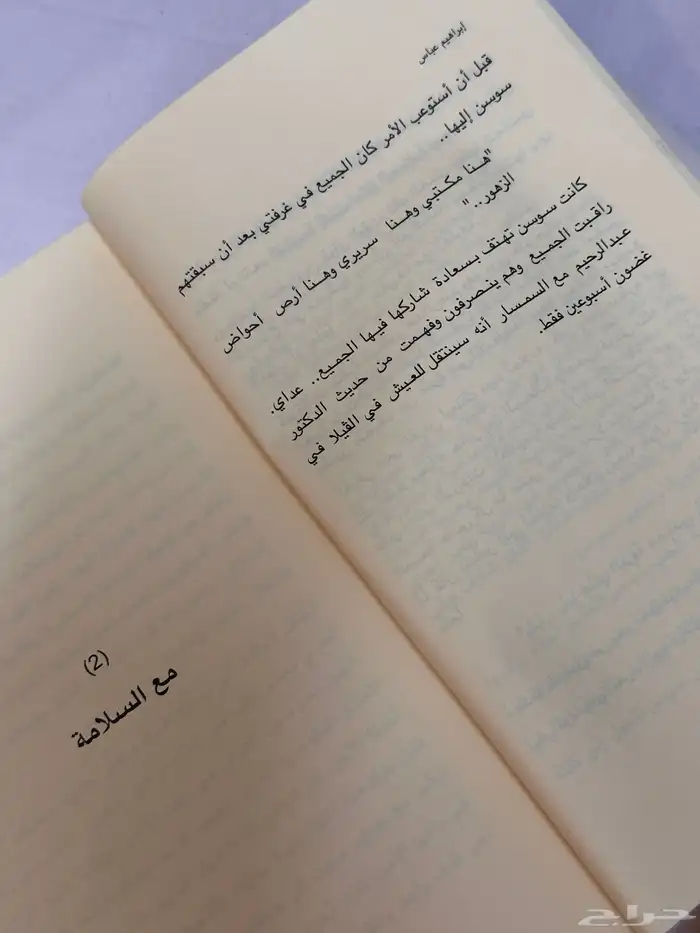 إبراهيم عباس
قبل أن أستوعب الأمر كان الجميع في غرفتي بعد أن سبقتهم
سوسن إليها..
"هنا مكتبي وهنا سريري وهنا أرص أحواض
الزهور.. "
كانت سوسن تهتف بسعادة شاركها فيها الجميع.. عداي.
راقبت الجميع وهم ينصرفون وفهمت من حديث الدكتور
عبدالرحيم مع السمسار أنه سينتقل للعيش في الڤيلا في
غضون أسبوعين فقط.
(2)
مع السلامة
حراج